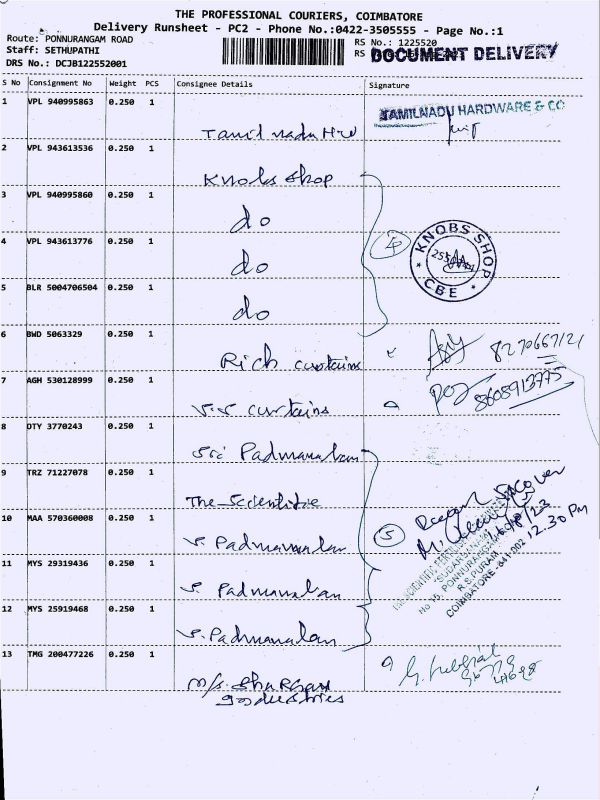 THE PROFESSIONAL COURIERS, COIMBATORE
Delivery Runsheet - PC2 - Phone No.:0422-3505555 - Page No.:1
Route: PONNURANGAM ROAD
Staff: SETHUPATHI
DRS No.: DCJB122552001
RS No.: 1225520
RS
DOCUMENT DELIVERY
S No Consignment No Weight PCS Consignee Details Signature
1 VPL 940995863 0.250 1 Tamil nadu H/W
TAMILNADU HARDWARE & CO
2 VPL 943613536 0.250 1 Knobs shop
3 VPL 940995860 0.250 1 do
4 VPL 943613776 0.250 1 do
5 BLR 5004706504 0.250 1 do
4
KNOBS SHOP
CBE
6 BWD 5063329 0.250 1 Rich curtains
8270667121
7 AGH 530128999 0.250 1 V.V curtains
8608913775
8 DTY 3770243 0.250 1 Sri Padmanaban
9 TRZ 71227078 0.250 1 The Scientific
10 MAA 570360008 0.250 1 S. Padmanaban
11 MYS 29319436 0.250 1 S. Padmanaban
12 MYS 25919468 0.250 1 S. Padmanaban
5
12.30 Pm
No 15, PONNURANGAM
R.S.PURAM
COIMBATORE-641 002
13 TMG 200477226 0.250 1 M/s.
Industries